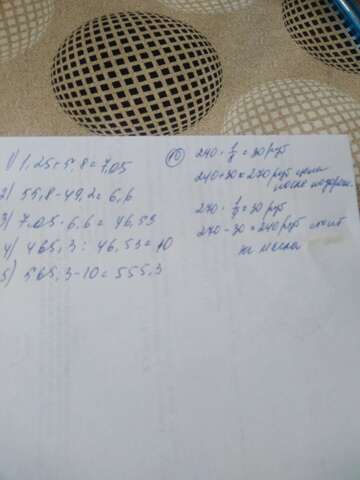 1) 1,25+5,8=7,05
2) 55,8-49,2=6,6
3) 7,05·6,6=46,53
4) 465,3:46,53=10
5) 565,3-10=555,3
10) 240·1/8=30 руб
240+30=270 руб цена
после подорож.
270·1/9=30 руб
270-30=240 руб стоит